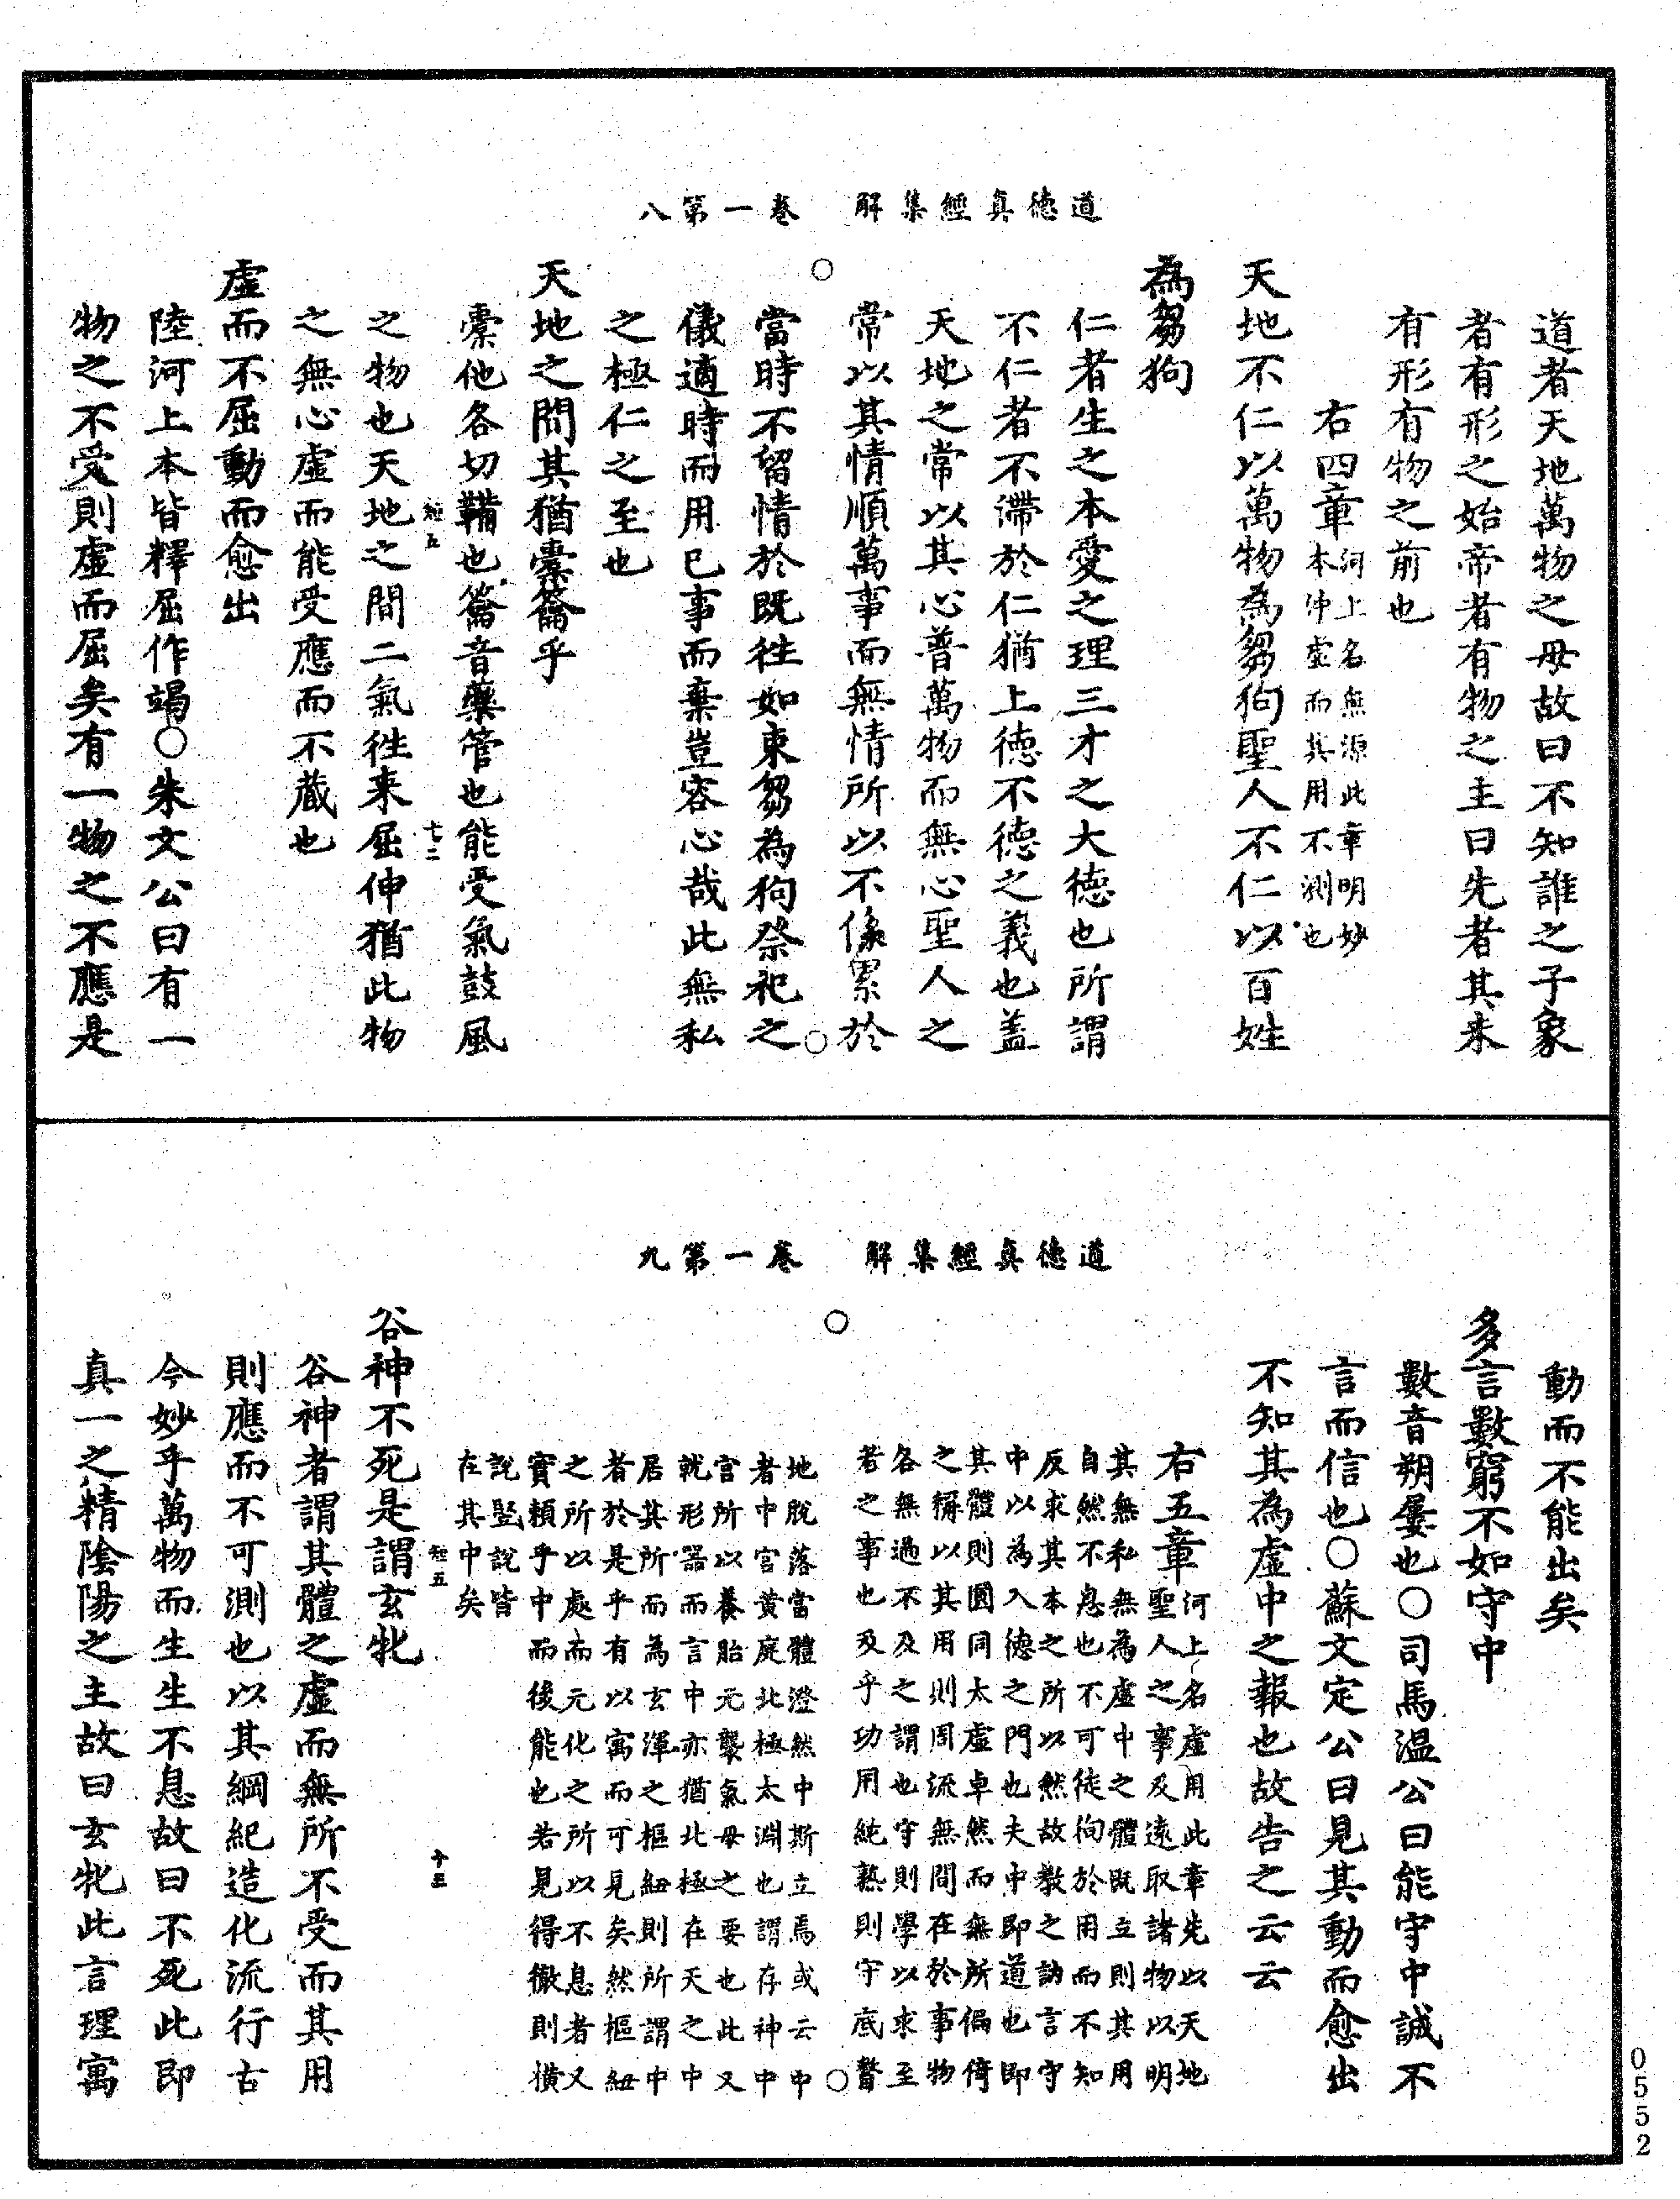 道德真經集解　卷一第八
道者天地萬物之母故曰不知誰之子象
者有形之始帝者有物之主曰先者其未
有形有物之前也
右四章
河上名無源此章明妙
本沖虛而其用不測也
天地不仁以萬物為芻狗聖人不仁以百姓
為芻狗
仁者生之本愛之理三才之大德也所謂
不仁者不滯於仁猶上德不德之義也盖
天地之常以其心普萬物而無心聖人之
常以其情順萬事而無情所以不係累於
當時不留情於既徃如束芻為狗祭祀之
儀適時而用已事而棄豈容心哉此無私
之極仁之至也
天地之間其猶橐籥乎
橐他各切鞴也籥音藥管也能受氣鼓風
短五　十二
之物也天地之間二氣徃来屈伸猶此物
之無心虛而能受應而不藏也
虛而不屈動而愈出
陸河上本皆釋屈作竭○朱文公曰有一
物之不受則虛而屈矣有一物之不應是
道德真經集解　卷一第九
動而不能出矣
多言數窮不如守中
數音朔屢也○司馬温公曰能守中誠不
言而信也○蘇文定公曰見其動而愈出
不知其為虛中之報也故告之云云
右五章
河上名虛用此章先以天地
聖人之事及遠取諸物以明
其無私無為虛中之體既立則其用
自然不息也不可徒徇於用而不知
反求其本之所以然故教之訥言守
中以為入德之門也夫中即道也即
其體則圓同太虛卓然而無所偏倚
之稱以其用則周流無間在於事物
各無過不及之謂也守則學以求至
若之事也及乎功用純熟則守底
地脫落當體澄然中斯立焉或云中
者中宫黄庭北極太淵也謂存神中
宫所以養胎元襲氣母之要也此又
就形器而言中亦猶北極在天之中
居其所而為玄渾之樞紐則所謂中
者於是乎有以寓而可見矣然樞紐
之所以處而元化之所以不息者又
實頼乎中而後能也若見得徹則橫
說竪說皆
在其中矣
短五　十三
谷神不死是謂玄牝
谷神者謂其體之虛而無所不受而其用
則應而不可測也以其綱紀造化流行古
今妙乎萬物而生生不息故曰不死此即
真一之精陰陽之主故曰玄牝此言理寓
0552